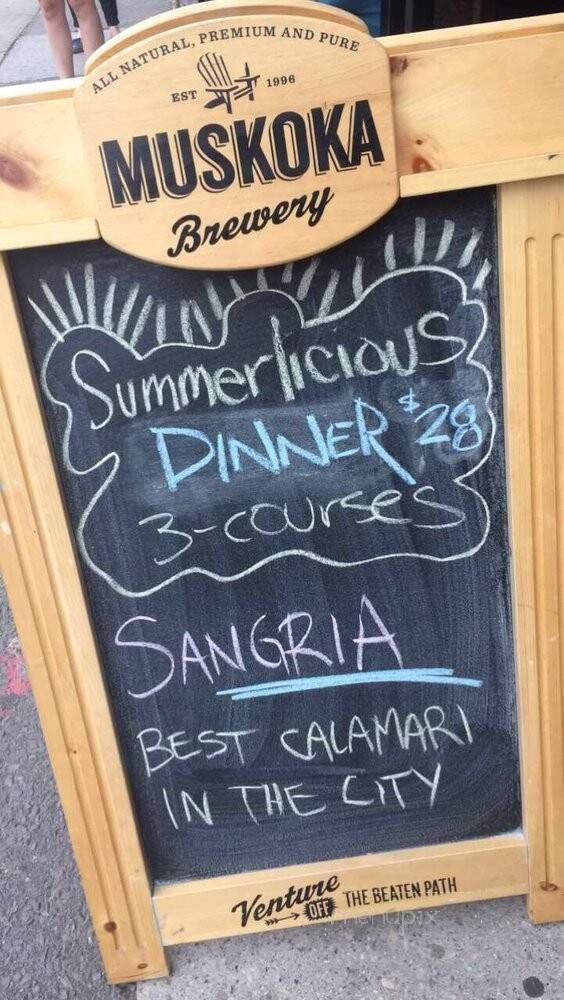 ALL NATURAL, PREMIUM AND PURE
EST 1996
MUSKOKA
Brewery
Summerlicious
DINNER $28
3-courses
SANGRIA
BEST CALAMARI
IN THE CITY
Venture OFF THE BEATEN PATH